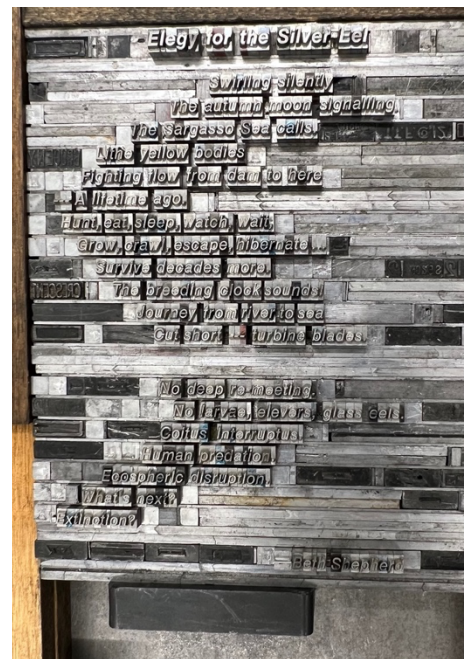 Elegy for the Silver Eel
Swirling silently
The autumn moon signalling,
The Sargasso Sea calls.
Lithe yellow bodies
Fighting flow from dam to here
A lifetime ago.
Hunt, eat, sleep, watch, wait,
Grow, crawl, escape, hibernate ...
Survive decades more.
The breeding clock sounds!
Journey from river to sea
Cut short ... turbine blades.
No deep re-meeting.
No larvae, elevers, glass eels.
Coitus interruptus.
Human predation,
Ecospheric disruption.
What's next?
Extinction?
Beth Shepher